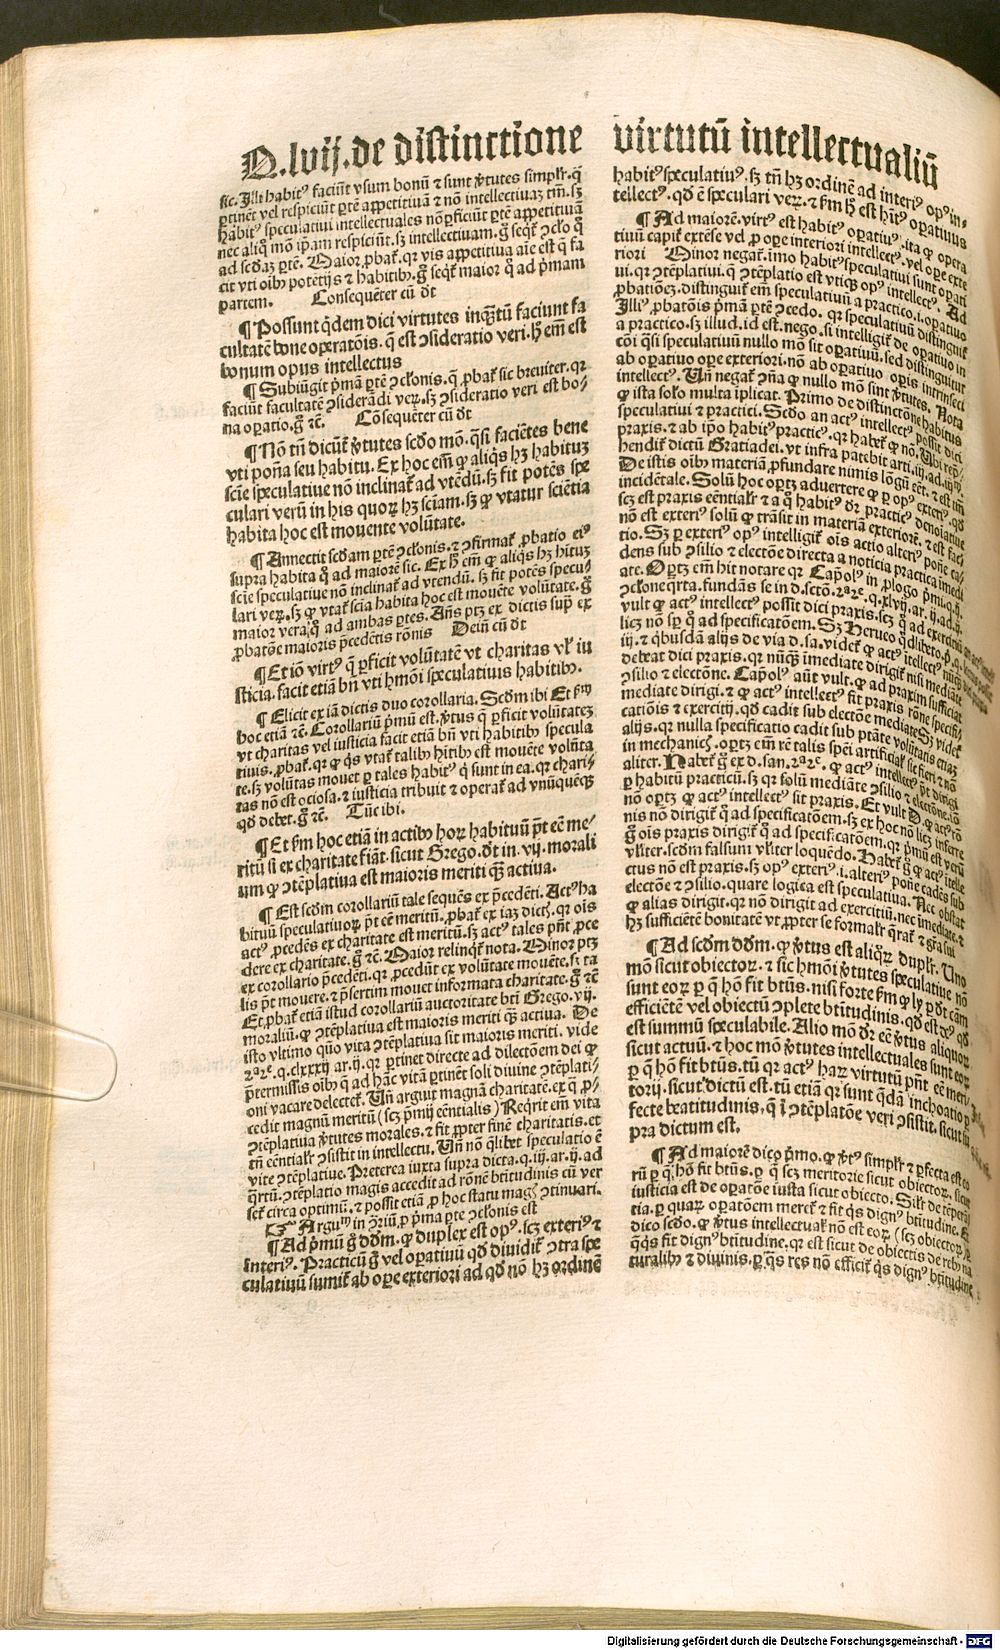 Q.lvij.de distinctione virtutū intellectualiū
sic. Illi habitꝰ faciūt vsum bonū ⁊ sunt v̓tutes simplr̄. q̄
ꝑtinēt vel respiciūt ꝑtē appetitiuā ⁊ nō intellectiuaꝫ tm̄. sꝫ
habitꝰ speculatiui intellectuales nō ꝑficiūt ꝑtē appetitiuā
nec aliq̊ mō ip̄am respiciūt. sꝫ intellectiuam. g̊ seqr̄ ɔclo q̊
ad scd̄aꝫ ꝑtē. Maior ꝓbat̄. qr vis appetitiua aīe est q̄ fa
cit vti oibꝫ potētijs ⁊ habitibꝫ. g̊ seqr̄ maior q̊ ad p̓mam
partem. Consequēter cū dt
¶ Possunt q̇dem dici virtutes inq̄ꝫtū faciunt fa
cultatē bone operatōis. q̄ est ɔsideratio veri. h̄ em̄ est
bonum opus intellectus
¶ Subiūgit p̓mā ꝑtē ɔclonis. q̄ ꝓbat̄ sic breuiter. qr
faciūt facultatē ɔsiderādi veꝝ. sꝫ ɔsideratio veri est bo-
na oꝑatio. g̊ ⁊c̄. Cōsequēter cū dt
¶ Nō tn̄ dicūt̄ v̓tutes scd̄o mō. q̄si faciētes bene
vti potn̄a seu habitu. Ex hoc em̄ ꝙ aliq̇s hꝫ habituꝫ
scīe speculatiue nō inclinat̄ ad vtēdū. sꝫ fit potēs spe
culari verū in his quoꝝ hꝫ sciam. sꝫ ꝙ vtatur sciētia
habita hoc est mouente volūtate.
¶ Annectit scd̄am ꝑtē ɔclonis. ⁊ ɔfirmat̄ ꝓbatio eiꝰ
supra habita q̊ ad maiorē sic. Ex h̄ em̄ ꝙ aliq̇s hꝫ hītuꝫ
scīe speculatiue nō inclinat̄ ad vtendū. sꝫ fit potēs specu-
lari veꝝ. sꝫ ꝙ vtat̄ scīa habita hoc est mouēte volūtate. g̊
maior vera q̊ ad ambas ꝑtes. Añs ptꝫ ex dictis sup̄ ex
ꝓbatōne maioris p̄cedētis rōnis Dein̄ cū dt
¶ Et iō virtꝰ q̄ ꝑficit volūtatē vt charitas vl̓ iu
sticia. facit etiā bn̄ vti hmōi speculatiuis habitibꝫ.
¶ Elicit ex iā dictis duo corollaria. Scd̄m ibi Et ẜm
hoc etiā ⁊c̄. Corollariū p̓mū est. v̓tus q̄ ꝑficit volūtateꝫ
vt charitas vel iusticia facit etiā bn̄ vti habitibꝫ specula
tiuis. ꝓbat̄. qr ꝙ q̇s vtat̄ talibꝫ hitibꝫ est mouēte volūta
te. sꝫ volūtas mouet ꝑ tales habitꝰ q̇ sunt in ea. qr chari-
tas nō est ociosa. ⁊ iusticia tribuit ⁊ operat̄ ad vnūquēqꝫ
qd̄ debet. g̊ ⁊c̄. Tūc ibi.
¶ Et ẜm hoc etiā in actibꝫ hoꝝ habituū p̄t eē me-
ritū si ex charitate fiāt. sicut Grego. dt in. vj. morali
um ꝙ ɔtēplatiua est maioris meriti q̄ꝫ actiua.
¶ Est scd̄m corollariū tale sequēs ex p̄cedēti. Actꝰ ha
bituū speculatiuoꝝ p̄t eē meritū. ꝓbat̄ ex iaꝫ dict̄. qr ois
actꝰ ꝓcedēs ex charitate est meritū. sꝫ actꝰ tales pn̄t ꝓce
dere ex charitate. g̊ ⁊c̄. Maior relinqt̄ nota. Minor ptꝫ
ex corollario p̄cedēti. qr ꝓcedūt ex voluntate mouēte. sꝫ ta
lis p̄t mouere. ⁊ p̄sertim mouet informata charitate. g̊ ⁊c̄
Et ꝓbat̄ etiā istud corollariū auctoritate bt̄i Grego. vj.
moraliū. ꝙ ɔtēplatiua est maioris meriti q̄ꝫ actiua. De
isto vltimo quō vita ɔtēplatiua sit maioris meriti. vide
2a2e. q. clxxxij ar. ij. qr ꝑtinet directe ad dilectōem dei ꝙ
p̄termissis oibꝫ q̄ ad hāc vitā ꝑtinēt soli diuine ɔtēplati-
oni vacare delectet̄. Vn̄ arguit magnā charitatē. ex q̄ ꝓ-
cedit magnū meritū (scꝫ p̓mij eēntialis) Req̇rit em̄ vita
ɔtēplatiua v̓tutes morales. ⁊ fit ꝓpter finē charitatis. et
tn̄ eēntialr̄ ɔsistit in intellectu. Vn̄ nō q̄libet speculatio ē
vite ɔtēplatiue. Preterea iuxta supra dicta. q. iij. ar. ij. ad
q̇rtū. ɔtēplatio magis accedit ad rōnē btitudinis cū ver
set̄ circa optimū. ⁊ possit etiā ꝓ hoc statu magꝭ ɔtinuari.
☞ Argum̄ in ɔ̓riū. ꝓ p̓ma ꝑte ɔclonis est
¶ Ad p̓mū g̊ dd̄m. ꝙ duplex est opꝰ. scꝫ exteriꝰ ⁊
interiꝰ. Practicū g̊ vel oꝑatiuū qd̄ diuidit̄ ɔtra spe
culatiuū sumit̄ ab oꝑe exteriori ad qd̄ nō hꝫ ordinē
habitꝰ speculatiuꝰ. sꝫ tn̄ hꝫ ordinē ad interiꝰ opꝰ in-
tellectꝰ. qd̄ ē speculari veꝝ. ⁊ ẜm h̄ est hītꝰ oꝑatiuus
¶ Ad maiorē. virtꝰ est habitꝰ oꝑatiuꝰ. ita ꝙ opera
tiuū capit̄ extēse vel ꝓ oꝑe interiori intellectꝰ. vel oꝑe exte
riori Minor negat̄. imo habitꝰ speculatiui sunt oꝑati
ui. qr ɔtēplatiui. q̄ ɔtēplatio est vtiqꝫ opꝰ intellectꝰ. Ad
ꝓbationeꝫ. distinguit̄ em̄ speculatiuū a practico. i. oꝑatiuo
Illiꝰ ꝓbatōis p̓mā ꝑtē ɔcedo. qr speculatiuū distinguit̄
a practico. sꝫ illud. id est. nego. si intelligit̄ de oꝑatiuo in
cōi q̄si speculatiuū nullo mō sit oꝑatiuū. sed distinguitur
ab oꝑatiuo oꝑe exteriori. nō ab oꝑatiuo opis intrinseci
intellectꝰ. Vn̄ negat̄ ɔn̄a ꝙ nullo mō sint v̓tutes. Nota
ꝙ ista solo multa īplicat. Primo de distinctōne habitus
speculatiui ⁊ practici. Scd̄o an actꝰ intellectꝰ possit dici
praxis. ⁊ ab ip̄o habitꝰ practicꝰ. qr habet̄ ꝙ nō. Vbi rep̄-
hendit̄ dictū Gratiadei. vt infra patebit arti. iij. ad. iij.
De istis oibꝫ materiā ꝓfundare nimis lōgū eēt. ⁊ est im̄
incidētale. Solū hoc oꝑtꝫ aduertere ꝙ ꝑ opꝰ exteriꝰ. qd̄
scꝫ est praxis eēntialr̄ ⁊ a q̊ habitꝰ dr̄ practicꝰ denoīatiue
nō est exteriꝰ solū ꝙ trāsit in materiā exteriorē. ⁊ est fac-
tio. Sꝫ ꝑ exteriꝰ opꝰ intelligit̄ ois actio alteriꝰ potn̄e ca-
dens sub ɔsilio ⁊ electōe directa a noticia practica īmedi
ate. Oꝑtꝫ em̄ hic notare qr Cap̄olꝰ in ꝓlogo p̓mi. q. ij.
ɔclone q̇rta. fundās se in d. scto. 2a2e. q. xlvij. ar. ij. ad. iij.
vult ꝙ actꝰ intellectꝰ possit dici praxis. scꝫ q̊ ad exercitiū
licꝫ nō sꝑ q̊ ad specificatōem. Sꝫ Herueo q̇dlibeto. p̓. q.
iij. ⁊ q̇busdā alijs de via d. sa. videt̄ ꝙ actꝰ itellectꝰ nūqꝫ
debeat dici praxis. qr nūq̄ꝫ īmediate dirigit̄ nisi mediate
ɔsilio ⁊ electōne. Cap̄olꝰ aūt vult. ꝙ ad praxim sufficiat
mediate dirigi. ⁊ ꝙ actꝰ intellectꝰ fit praxis rōne specifi-
catiōis ⁊ exercitij. qd̄ cadit sub electōe mediate Sꝫ videt̄
alijs. qr nulla specificatio cadit sub ptāte volūtatis etiaꝫ
in mechanicꝭ. oꝑtꝫ em̄ rē talis spēi artificialr̄ sic fieri ⁊ nō
aliter. Habet̄ g̊ ex d. san. 2a2e. ꝙ actꝰ intellectꝰ p̄t dirigi
ꝑ habitū practicū. sꝫ qr solū mediāte ɔsilio ⁊ electōne. iō
nō oꝑtꝫ ꝙ actꝰ intellectꝰ sit praxis. Et vult D. ꝙ actꝰ rō
nis nō dirigit̄ q̊ ad specificatōem. sꝫ ex hoc nō licꝫ inferre
g̊ ois praxis dirigit̄ q̊ ad specificatōem. qr p̓mū est verū
vl̓iter. scd̄m falsum vl̓iter loquēdo. Habet̄ g̊ ꝙ actꝰ itelle
ctus nō est praxis. sꝫ opꝰ exteriꝰ. i. alteriꝰ potn̄e cadēs sub
electōe ⁊ ɔsilio. quare logica est speculatiua. Nec obstat
ꝙ alias dirigit. qr nō dirigit ad exercitiū. nec īmediate. ⁊
hꝫ sufficiētē bonitatē vt ꝓpter se formalr̄ q̄rat̄ ⁊ gr̄a sui
¶ Ad scd̄m dd̄m. ꝙ v̓tus est aliqr̄ duplr̄. Uno
mō sicut obiectoꝝ. ⁊ sic hmōi v̓tutes speculatiue nō
sunt eoꝝ ꝑ q̄ hō fit btūs. nisi forte ẜm ꝙ ly ꝑ dt cām
efficiētē vel obiectū ɔplete btitudinis. qd̄ est deꝰ qd̄
est summū speculabile. Alio mō dr̄ eē v̓tus aliquoꝝ
sicut actuū. ⁊ hoc mō v̓tutes intellectuales sunt eoꝝ
ꝑ q̄ hō fit btūs. tū qr actꝰ haꝝ virtutū pn̄t eē meri-
torij. sicut dictū est. tū etiā qr sunt q̇dā inchoatio ꝑ
fecte beatitudinis. q̄ ī ɔtēplatōe veri ɔsistit. sicut su
pra dictum est.
¶ Ad maiorē dico p̓mo. ꝙ v̓tꝰ simplr̄ ⁊ ꝑfecta est eo
rū ꝑ q̄ hō fit btūs. ꝑ q̄ scꝫ meritorie sicut obiectoꝝ. sicut
iusticia est de oꝑatōe iusta sicut obiecto. Silr̄ de tēperā
tia. ꝑ quaꝝ oꝑatōem meret̄ ⁊ fit q̇s dignꝰ btitudine. Et
dico scd̄o. ꝙ v̓tus intellectualis nō est eoꝝ (scꝫ obiectoꝝ) ꝑ
q̄ q̇s fit dignꝰ btitudine. qr est sicut de obiectis de rebꝫ na
turalibꝫ ⁊ diuinis. ꝑ q̄s res nō efficit̄ q̇s dignꝰ btitudine
Digitalisierung gefördert durch die Deutsche Forschungsgemeinschaft - DFG